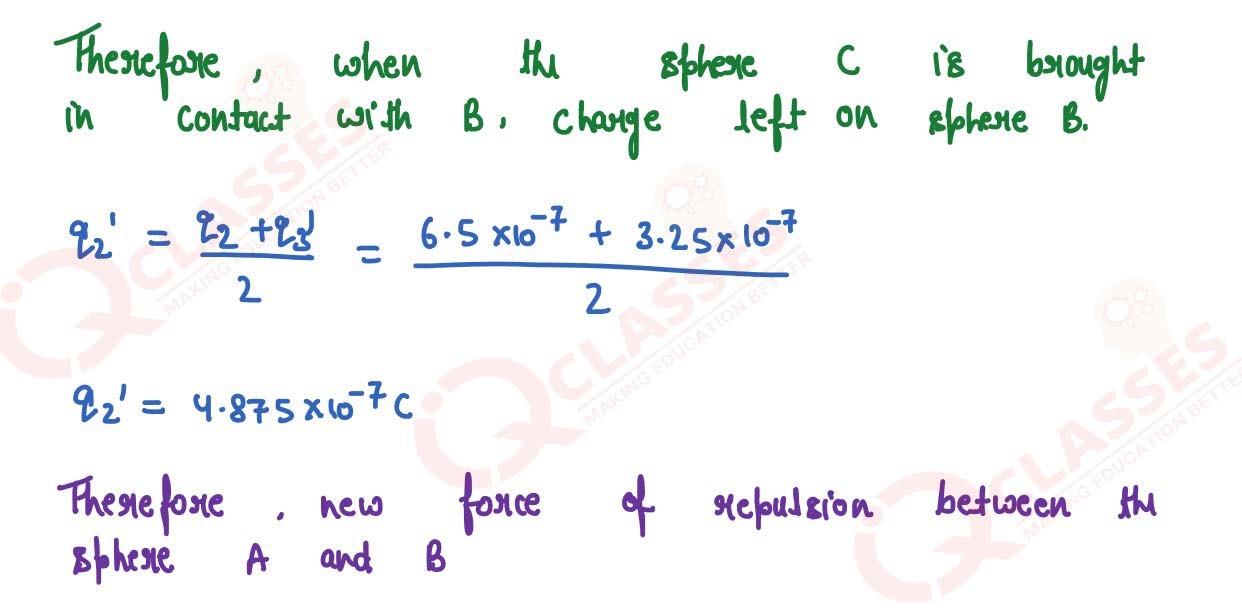 Therefore, when the sphere C is brought
in contact with B, charge left on sphere B.
q₂' = (q₂ + q₃')/2 = (6.5 × 10⁻⁷ + 3.25 × 10⁻⁷)/2
q₂' = 4.875 × 10⁻⁷ C
Therefore, new force of repulsion between the
sphere A and B
CLASSES
MAKING EDUCATION BETTER
CLASSES
MAKING EDUCATION BETTER
CLASSES
MAKING EDUCATION BETTER